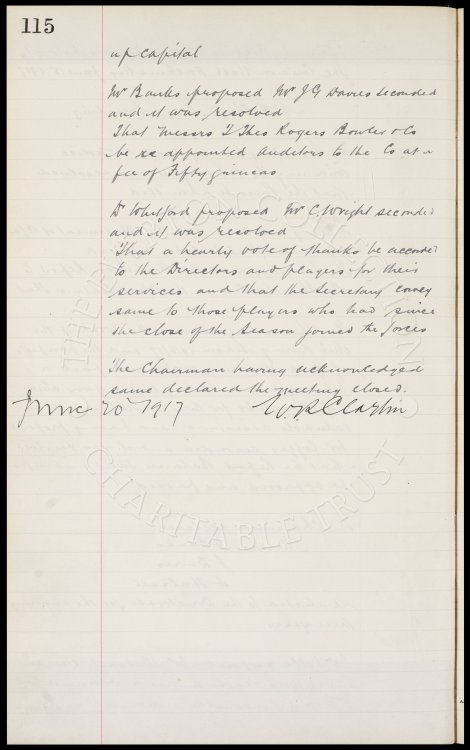 115
up capital
Mr Banks proposed Mr J G Davies seconded
and it was resolved
That Messrs T Theo Rogers Bowler & Co
be re appointed auditors to the Co at a
fee of Fifty guineas
Dr Whitford proposed Mr C. Wright seconded
and it was resolved
That a hearty vote of thanks be accorded
to the Directors and players for their
services and that the Secretary convey
same to those players who had since
the close of the Season joined the forces
The Chairman having acknowledged
same declared the meeting closed.
June 20 1917
THE EVERTON COLLECTION
CHARITABLE TRUST